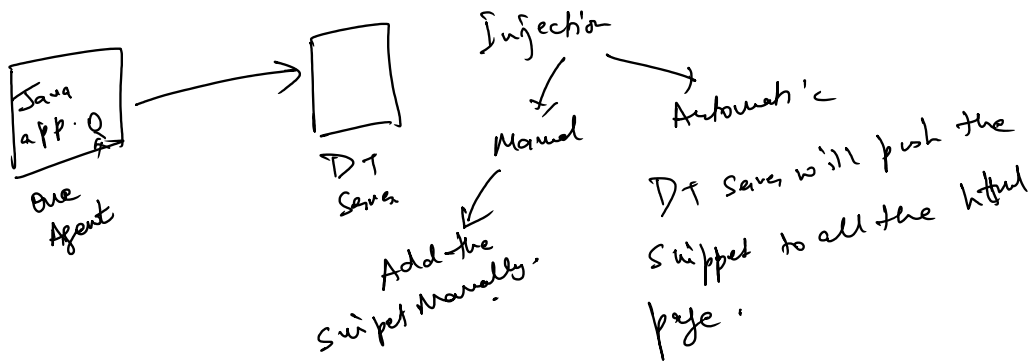 Java
app.
One
Agent
DT
Server
Injection
Manual
Add the
snippet Manually.
Automatic
DT Server will push the
snippet to all the html
page.